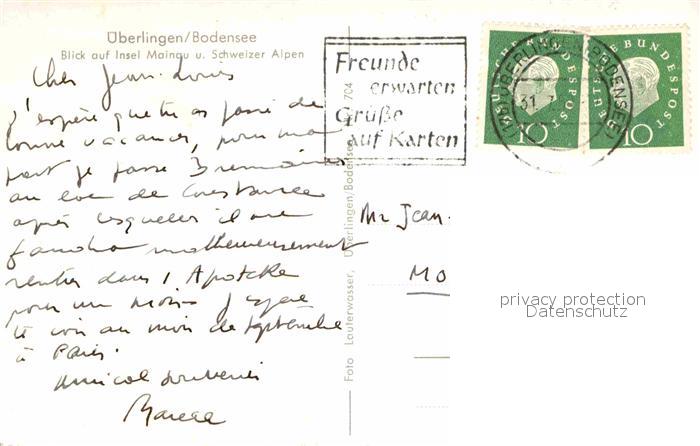 Überlingen/Bodensee
Blick auf Insel Mainau u. Schweizer Alpen
Cher Jean-Louis
J'espère que tu as passé de
bonne vacances, pour ma
part je passe 3 semaines
au lac de Constance
après lesquelles il me
faudra malheureusement
rentrer dans l'Apoteke
pour un mois. J'espère
te voir au mois de septembre
à Paris.
Amical souvenir
Foto Lauterwasser, Überlingen/Bodensee
704
Freunde
erwarten
Grüße
auf Karten
ÜBERLINGEN (BODENSEE)
31.
DEUTSCHE BUNDESPOST
10
DEUTSCHE BUNDESPOST
10
Mr Jean.
MO
privacy protection
Datenschutz